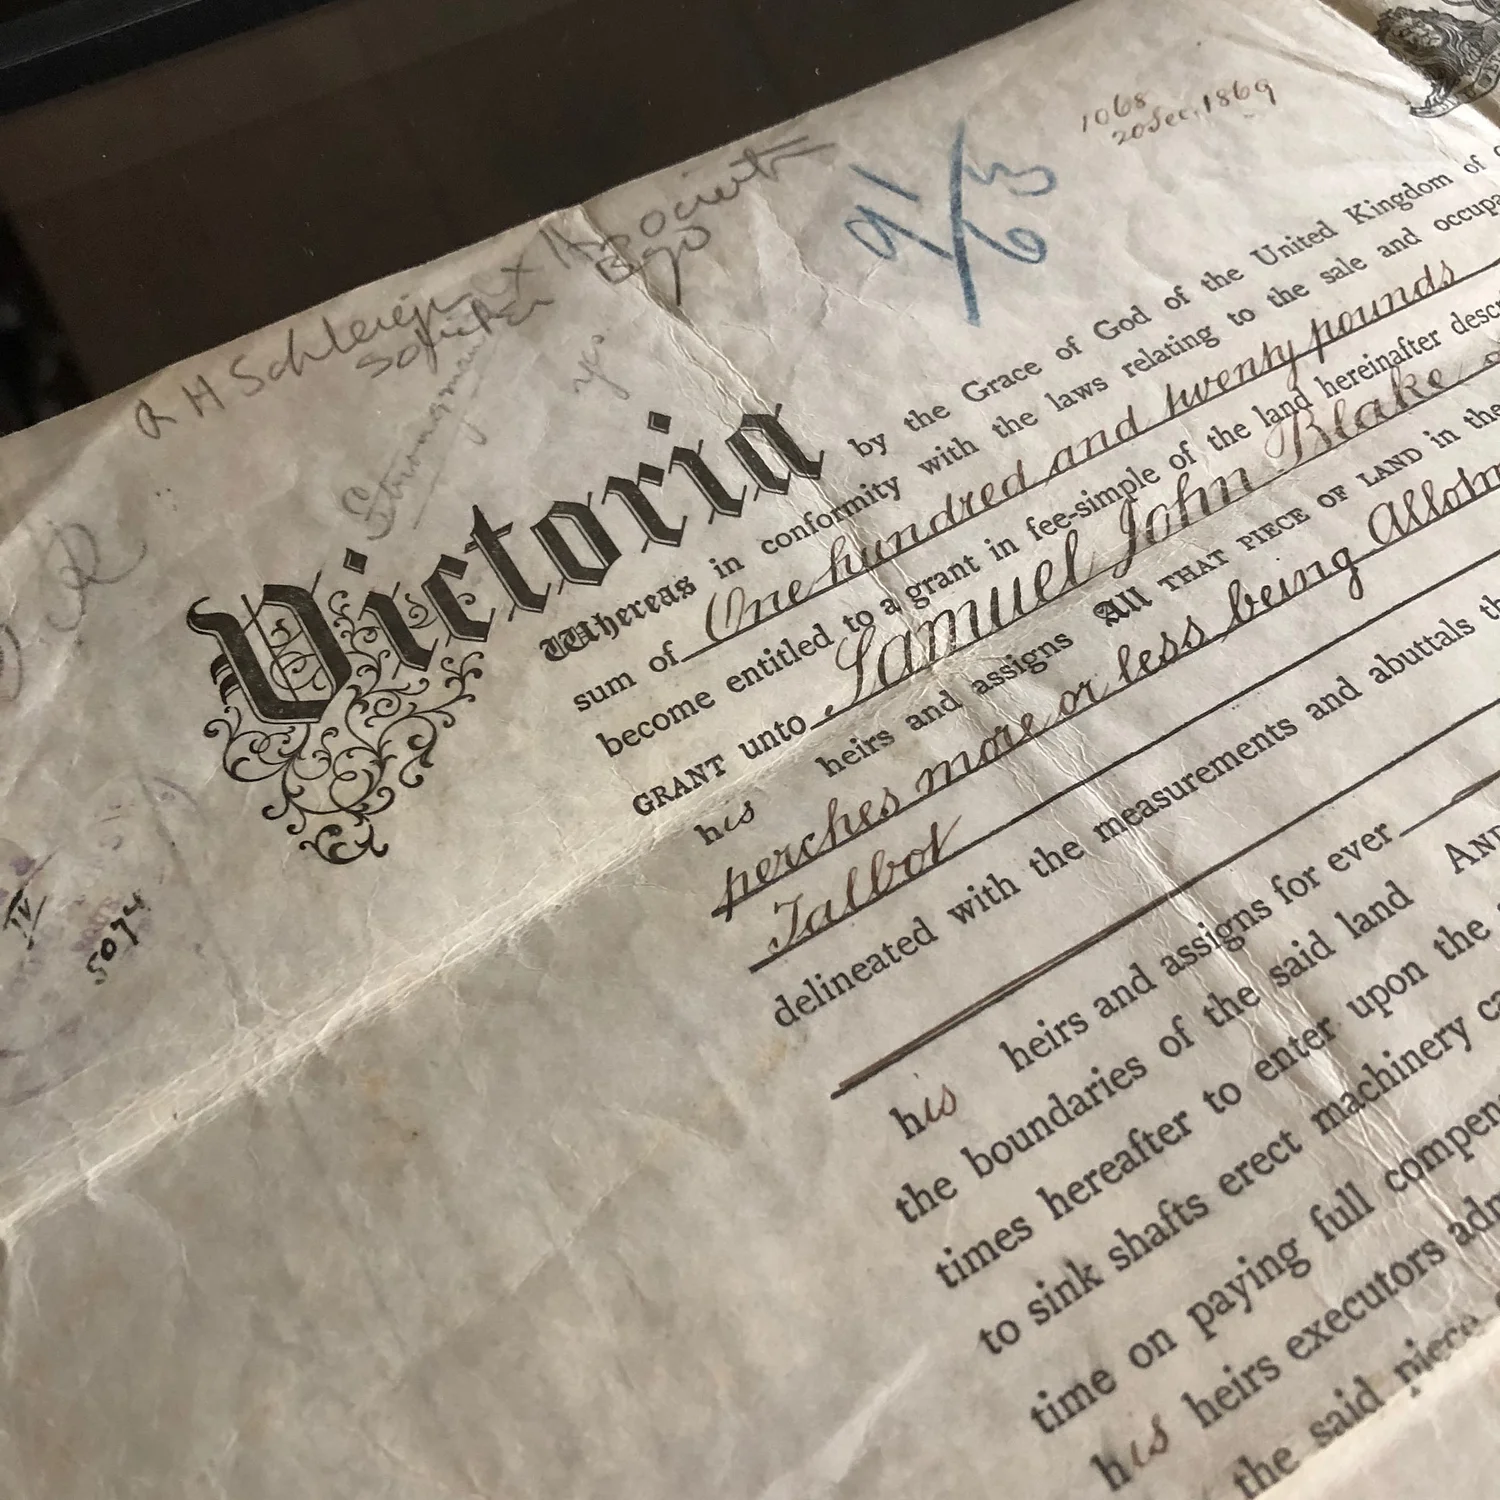 1068
20 Dec. 1869
R H Schleiger & Associate
Bgo
Strongman
yes
Victoria by the Grace of God of the United Kingdom of
Whereas in conformity with the laws relating to the sale and occupa
sum of One hundred and twenty pounds
become entitled to a grant in fee-simple of the land hereinafter descr
GRANT unto Samuel John Blake
his heirs and assigns All THAT PIECE OF LAND in the
perches more or less being Allotm
Talbot
delineated with the measurements and abuttals th
his heirs and assigns for ever
the boundaries of the said land AND
times hereafter to enter upon the
to sink shafts erect machinery ca
time on paying full compen
his heirs executors adm
the said piece
IV
5074